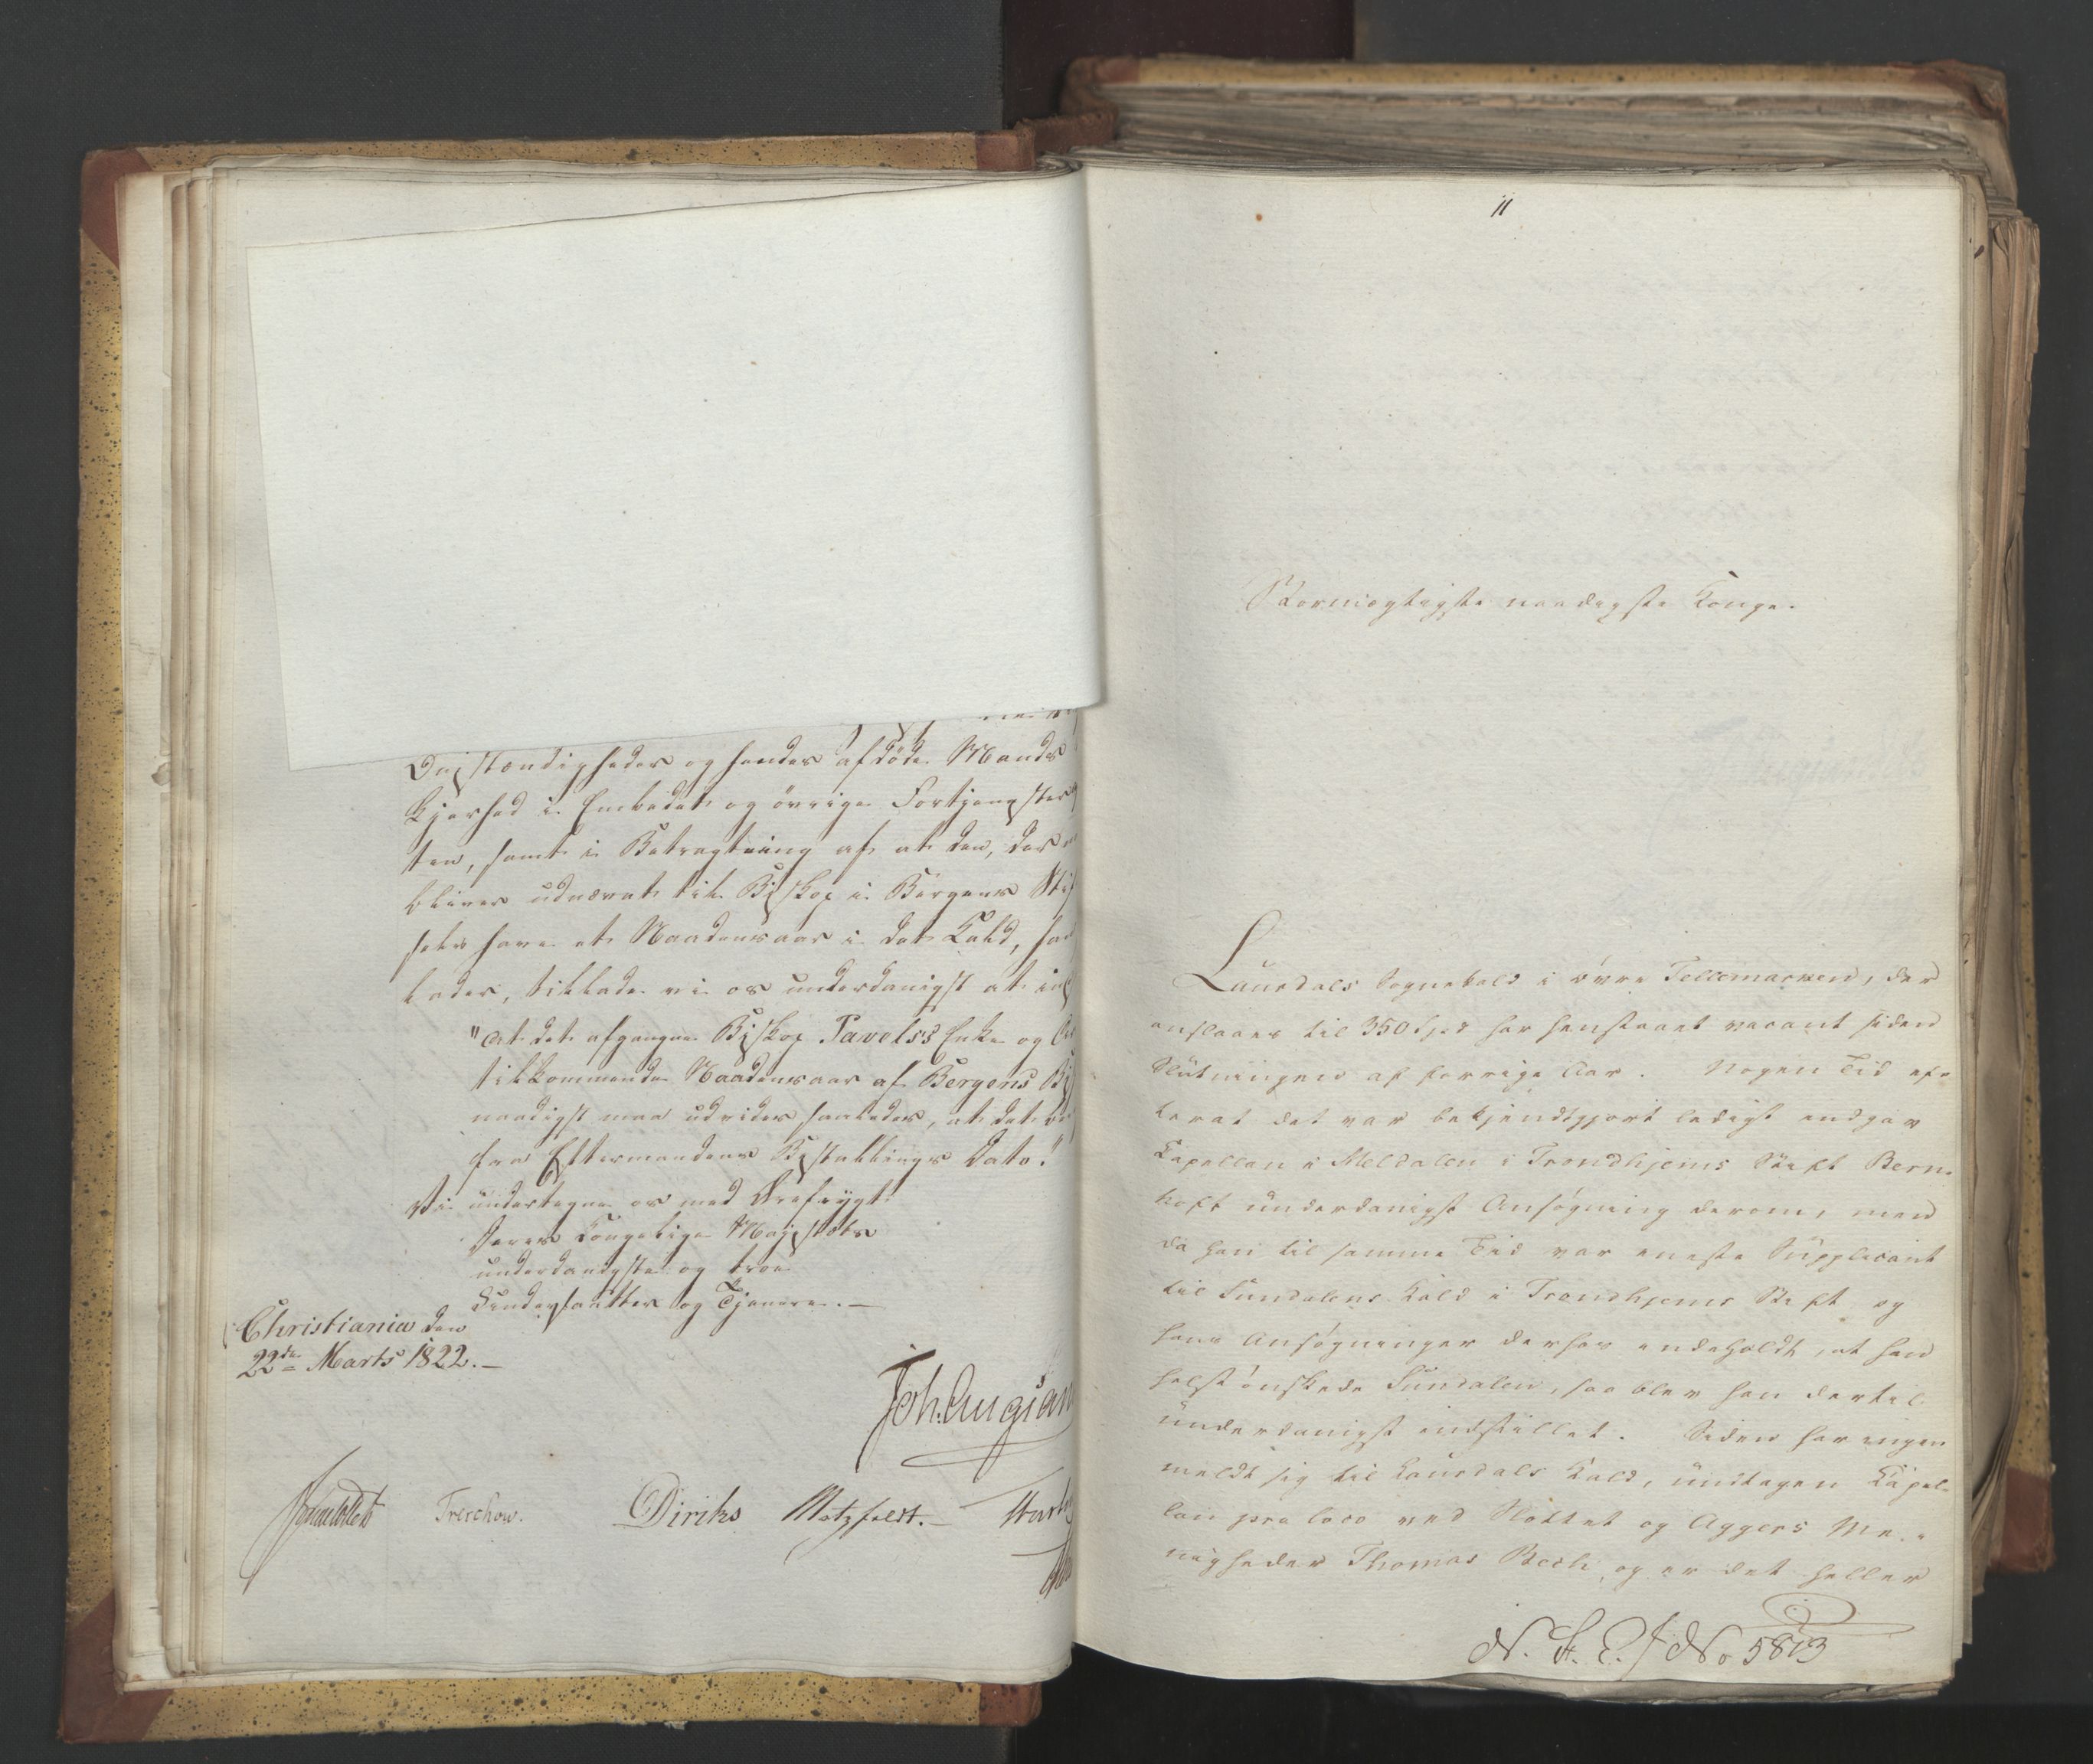 Omstændigheder og hendes afdöde Mands
Kjærhed i Embedet og övrige Fortjenester
ten, samt i Betragtning af at den, der
bliver udnævnt til Biskop i Bergens Stif
selv have et Naadensaar i det Kald, han
lader, tillade vi os underdanigst at ind
"At det afgangne Biskop Pavelss Enke og
tilkommende Naadensaar af Bergens Bi
naadigst maa udvides saaledes, at det
fra Eftermandens Bestallings Dato."
Vi undertegne os med Ærefrygt
Deres Kongelige Majestæts
underdanigste og troe
Undersaatter og Tjenere. —
Christiania den
22de Marts 1822. —
Joh. Aug. San
Sommerfeldt Treschow. Diriks Motzfeldt. —
11
Stormægtigste naadigste Konge.
Laurdals Sognekald i övre Tellemarken, der
anslaaes til 350 Spd har henstaaet vacant siden
Slutningen af forrige Aar. Nogen Tid ef-
terat det var bekjendtgjort ledigt indgav
Capellan i Meldalen i Trondhjems Stift Bern-
hoft underdanigst Ansøgning derom, men
da han til samme Tid var eneste Supplicant
til Sundalens Kald i Trondhjems Stift og
hans Ansøgninger derhos indeholdt, at han
helst ønskede Sundalen, saa blev han dertil
underdanigst indstillet. Siden har ingen
meldt sig til Laurdals Kald, undtagen Capel-
lan pro loco ved Slottet og Aggers Me-
nigheder Thomas Bech, og er det heller
No 5813